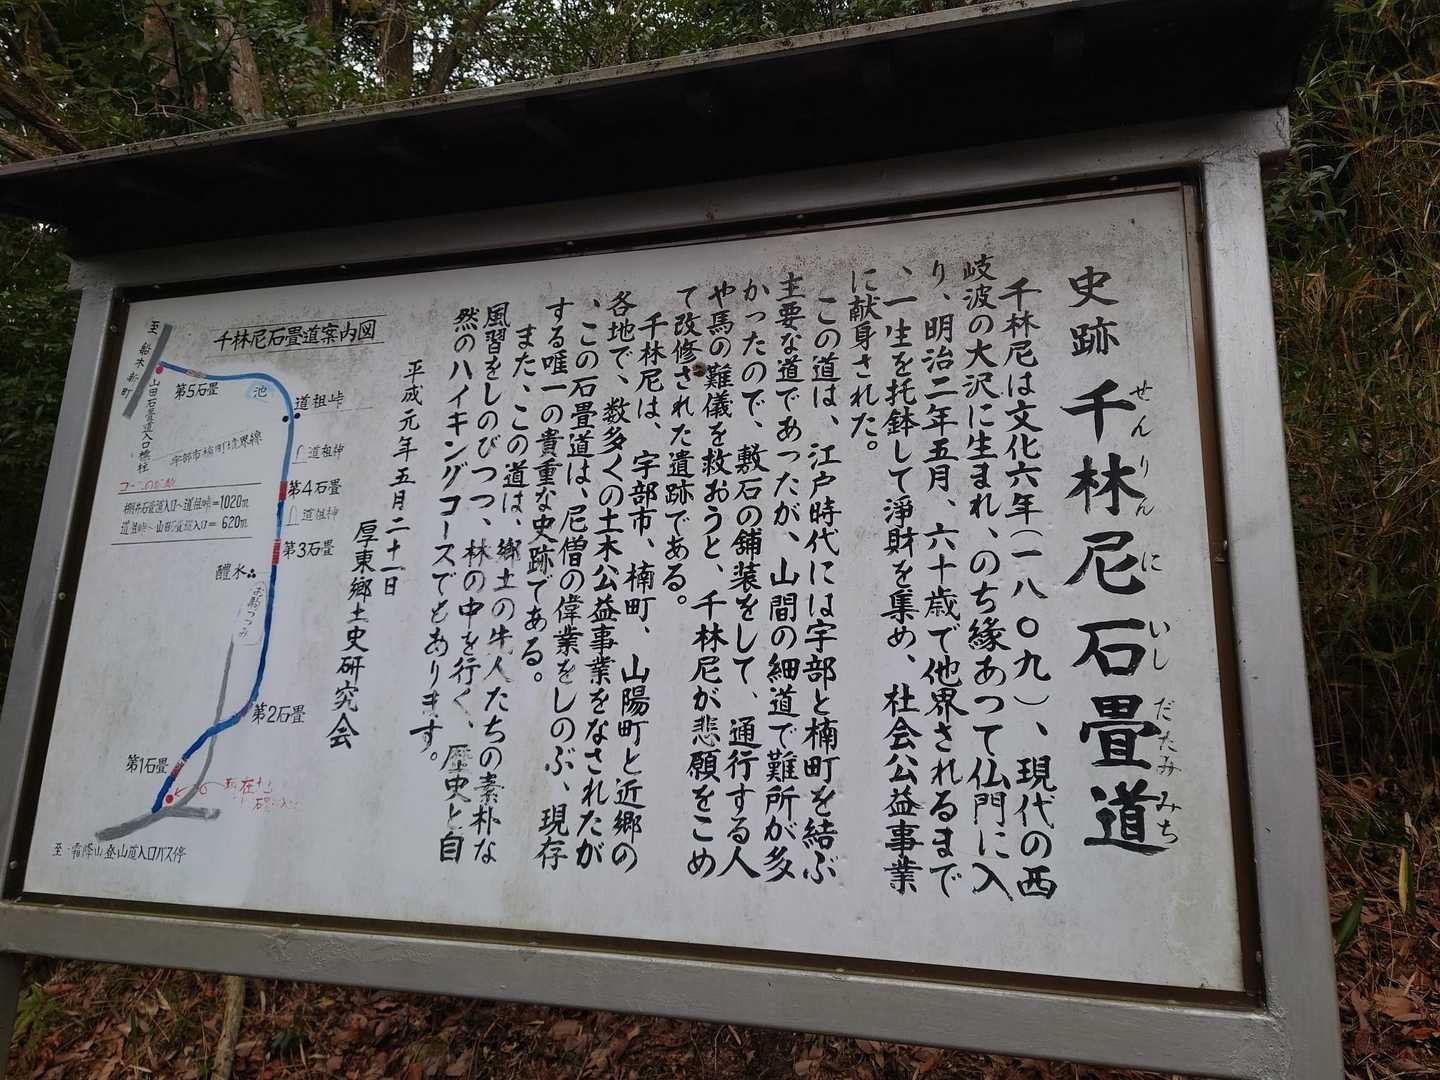 史跡 千林尼石畳道
せんりんにいしだたみみち
千林尼は文化六年(一八〇九)、現代の西
岐波の大沢に生まれ、のち縁あつて仏門に入
り、明治二年五月、六十歳で他界されるまで
、一生を托鉢して浄財を集め、社会公益事業
に献身された。
この道は、江戸時代には宇部と楠町を結ぶ
主要な道であったが、山間の細道で難所が多
かったので、敷石の舗装をして、通行する人
や馬の難儀を救おうと、千林尼が悲願をこめ
て改修された遺跡である。
千林尼は、宇部市、楠町、山陽町と近郷の
各地で、数多くの土木公益事業をなされたが
、この石畳道は、尼僧の偉業をしのぶ、現存
する唯一の貴重な史跡である。
また、この道は、郷土の先人たちの素朴な
風習をしのびつつ、林の中を行く、歴史と自
然のハイキングコースでもあります。
平成元年五月二十一日
厚東郷土史研究会
千林尼石畳道案内図
至 船木新町
山田石畳道入口標柱
第5石畳
池
道祖峠
宇部市楠町境界線
道祖神
第4石畳
道祖神
第3石畳
石畳道入口~道祖峠=1020m
道祖峠~山田石畳道入口=620m
醴水
第2石畳
第1石畳
現在地
至 霜降山登山道入口バス停